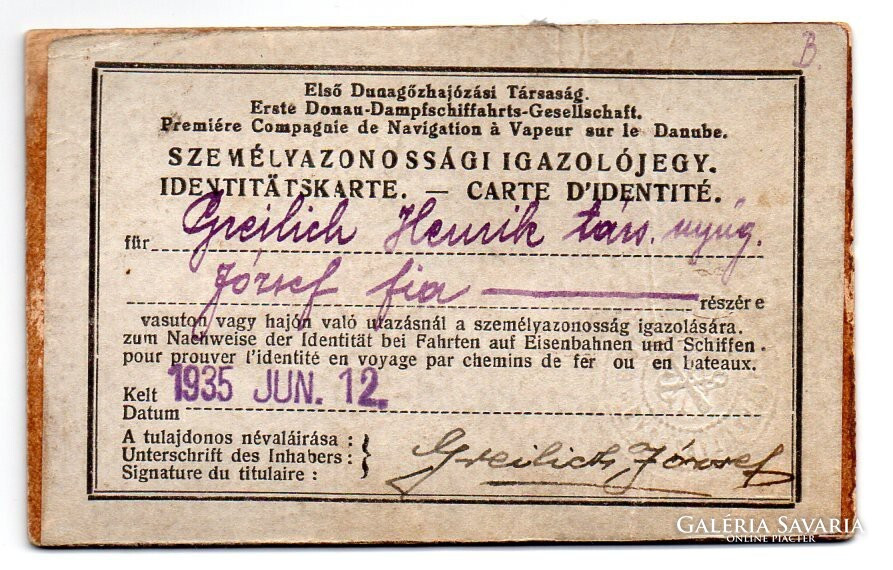 B.
Első Dunagőzhajózási Társaság.
Erste Donau-Dampfschiffahrts-Gesellschaft.
Premiére Compagnie de Navigation à Vapeur sur le Danube.
SZEMÉLYAZONOSSÁGI IGAZOLÓJEGY.
IDENTITÄTSKARTE. — CARTE D'IDENTITÉ.
für Greilich Henrik társ. nyug.
József fia — részére
vasuton vagy hajón való utazásnál a személyazonosság igazolására.
zum Nachweise der Identität bei Fahrten auf Eisenbahnen und Schiffen.
pour prouver l'identité en voyage par chemins de fer ou en bateaux.
Kelt 1935 JUN. 12.
Datum
A tulajdonos névaláirása :
Unterschrift des Inhabers : Greilich József
Signature du titulaire :
GALÉRIA SAVARIA
ONLINE PIACTÉR